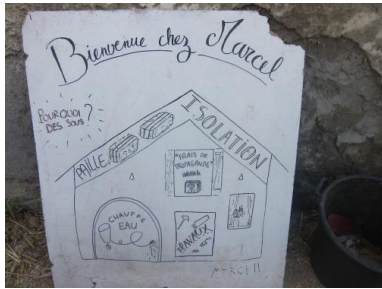 Bienvenue chez Marcel
POURQUOI
DES SOUS ?
ISOLATION
PAILLE
"FRAIS DE
PROPAGANDE"
CHAUFFE
EAU
TRAVAUX
MERCI !!